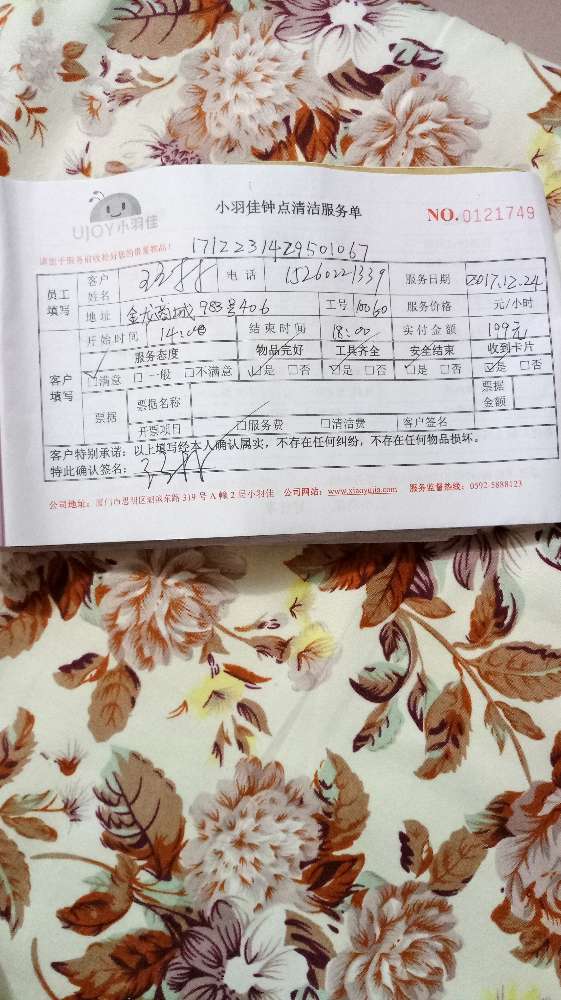 UJOY小羽佳
小羽佳钟点清洁服务单
NO.0121749
1712231429501067
员工填写 客户姓名 电话 15260221339 服务日期 2017.12.24
地址 金龙尚城983号406 工号 10060 服务价格 元/小时
开始时间 14:00 结束时间 18:00 实付金额 199元
客户填写 服务态度 物品完好 工具齐全 安全结束 收到卡片
☑满意 □一般 □不满意 ☑是 □否 ☑是 □否 ☑是 □否 ☑是 □否
票据 票据名称 票据金额
开票项目 □服务费 □清洁费 客户签名
客户特别承诺：以上填写经本人确认属实，不存在任何纠纷，不存在任何物品损坏。
特此确认签名：
公司地址：厦门市思明区 东路319号A幢2层小羽佳 公司网站：www.xiaoyujia.com 服务监督热线：0592-5888123